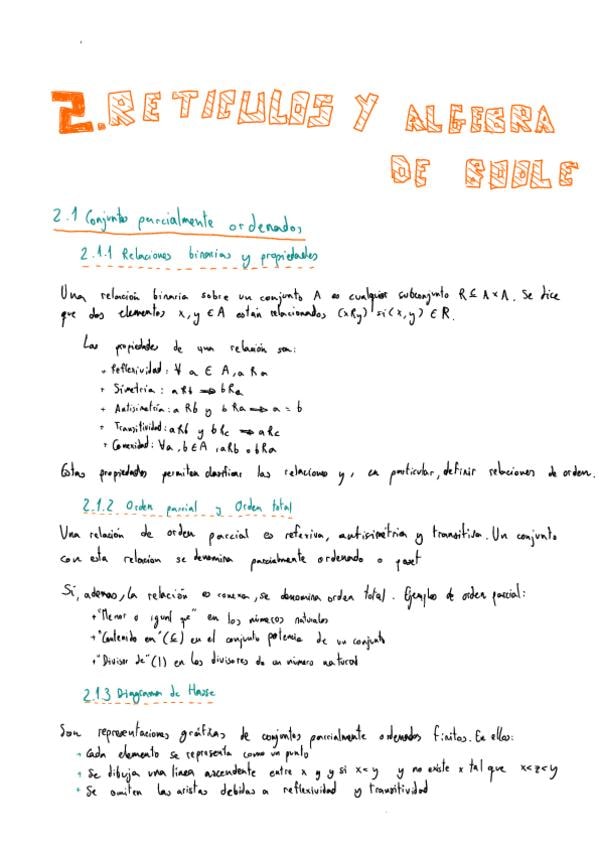 2. RETICULOS Y ALGEBRA
DE BOOLE
2.1 Conjuntos parcialmente ordenados
2.1.1 Relaciones binarias y propiedades
Una relación binaria sobre un conjunto A es cualquier subconjunto R ⊆ A x A. Se dice
que dos elementos x, y ∈ A están relacionados (xRy) si (x, y) ∈ R.
Las propiedades de una relación son:
+ Reflexividad: ∀ a ∈ A, a R a
+ Simetría: a R b ⇒ b R a
+ Antisimetría: a R b y b R a ⇒ a = b
+ Transitividad: a R b y b R c ⇒ a R c
+ Conexidad: ∀a, b ∈ A, a R b o b R a
Estas propiedades permiten clasificar las relaciones y, en particular, definir relaciones de orden.
2.1.2 Orden parcial y Orden total
Una relación de orden parcial es referiva, antisimétrica y transitiva. Un conjunto
con esta relación se denomina parcialmente ordenado o poset
Si, ademas, la relación es conexa, se denomina orden total. Ejemplos de orden parcial:
+ "Menor o igual que" en los números naturales
+ "Contenido en" (⊆) en el conjunto potencia de un conjunto
+ "Divisor de" (|) en los divisores de un número natural
2.1.3 Diagramas de Hasse
Son representaciones gráficas de conjuntos parcialmente ordenados finitos. En ellos:
+ Cada elemento se representa como un punto
+ Se dibuja una linea ascendente entre x y y si x<y y no existe x tal que x<z<y
+ Se omiten las aristas debidas a reflexividad y transitividad